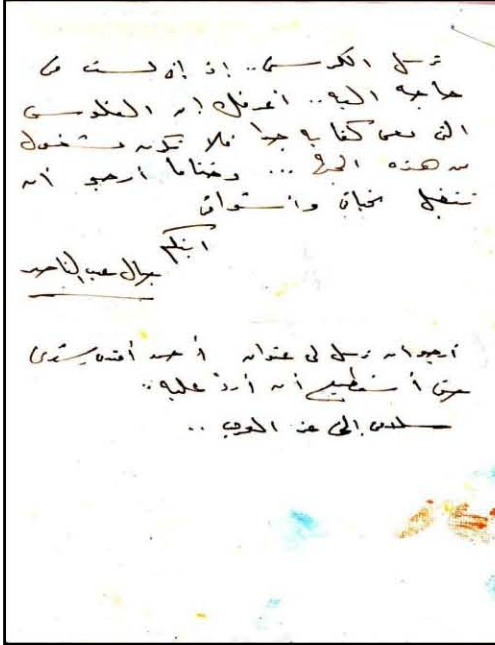 ترسل الكرسى .. إذ إنى لست فى
حاجة اليه .. أعرفك إن الفلوس
التى معى كفاية جدا فلا تكن مشغول
من هذه الجهة ... وختاما أرجو أن
تتقبل تحياتى وأشواقى
ابنكم
جمال عبد الناصر
أرجو ان ترسل لى عنوان أحمد أفندى
حتى أستطيع أن أرد عليه ..
سلامى إلى عز العرب ..